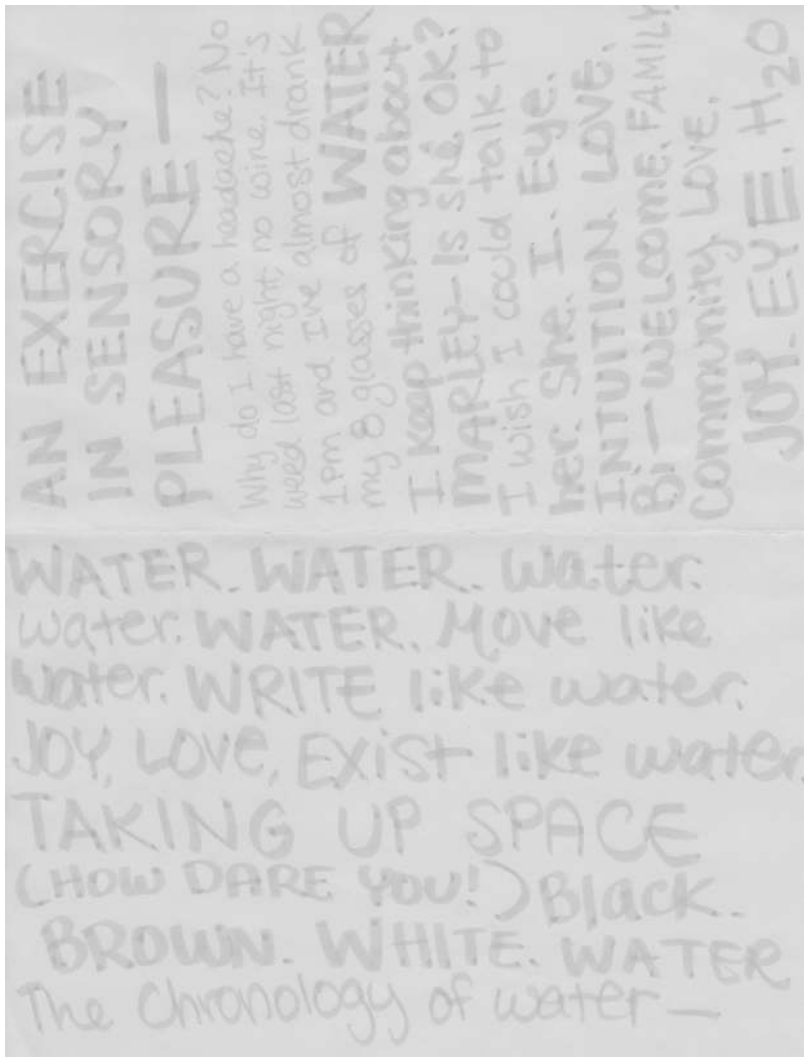 AN EXERCISE
IN SENSORY
PLEASURE —
Why do I have a headache? No
weed last night, no wine. It's
1pm and I've almost drank
my 8 glasses of WATER
I keep thinking about
MARLEY— Is she OK?
I wish I could talk to
her. She. I. Eye.
INTUITION. LOVE.
Bi — WELCOME. FAMILY
Community. LOVE.
JOY. EYE. H2O
WATER. WATER. Water.
water. WATER. Move like
water. WRITE like water.
JOY, LOVE, EXIST like water
TAKING UP SPACE
(HOW DARE YOU!) Black.
BROWN. WHITE. WATER
The Chronology of water —